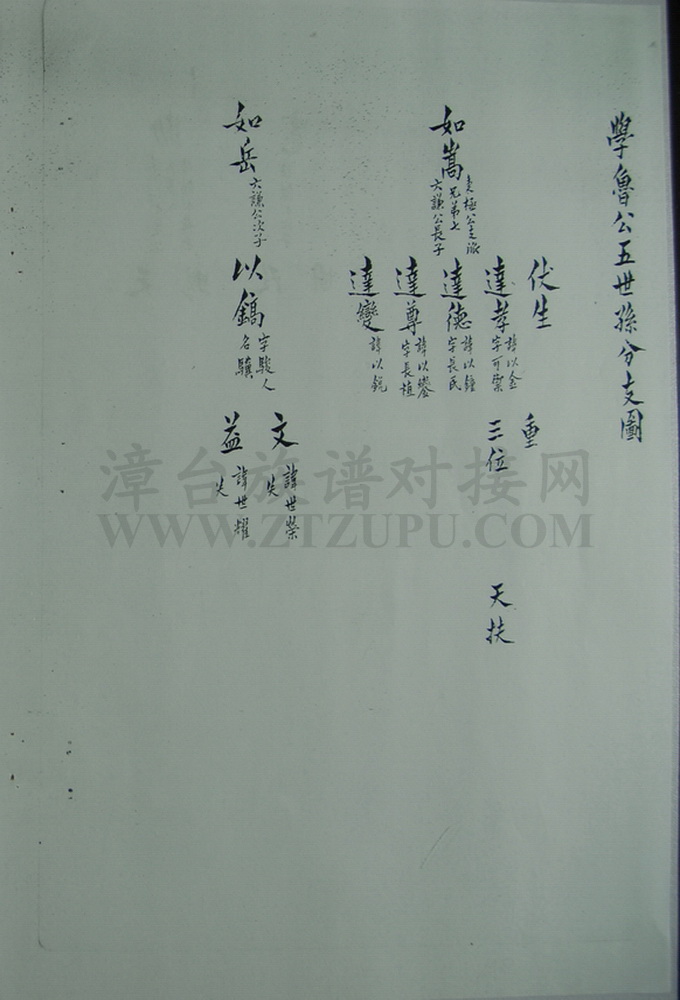 學魯公五世孫分支圖
如嵩
極公之派
兄弟七
六謙公長子
伏生
重
達孝
諱以金
字可
三位
天扶
達德
諱以鐘
字長民
達尊
諱以
字長植
達變
諱以銳
如岳
六謙公次子
以鎬
字駿人
名驥
文
諱世榮
失
益
諱世耀
失
漳台族谱对接网
WWW.ZTZUPU.COM